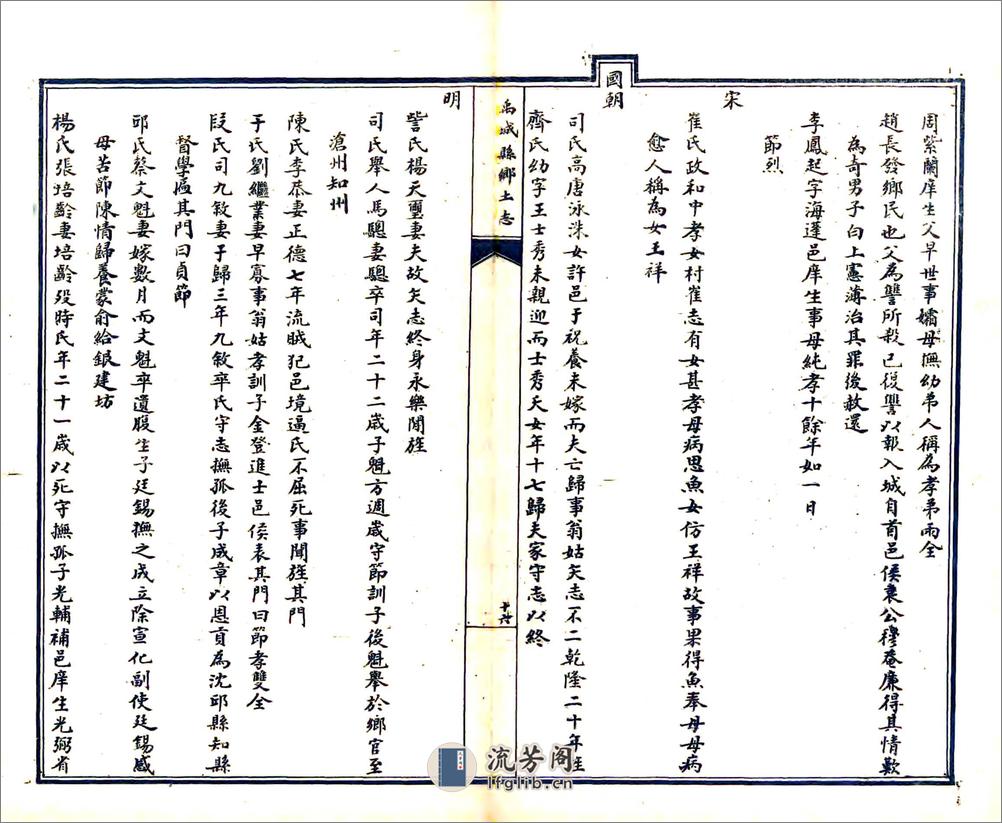 周紫蘭庠生父早世事孀母撫幼弟人稱為孝弟兩全
趙長發鄉民也父為讐所殺已復讐以報入城自首邑侯袁公穆菴廉得其情歎
為奇男子白上憲薄治其罪後赦還
李鳳起字海蓬邑庠生事母純孝十餘年如一日
節烈
宋
崔氏政和中孝女村崔志有女甚孝母病思魚女仿王祥故事果得魚奉母母病
愈人稱為女王祥
國朝
司氏高唐泳洙女許邑于祝養未嫁而夫亡歸事翁姑矢志不二乾隆二十年旌
齊氏幼字王士秀未親迎而士秀夭女年十七歸夫家守志以終
禹城縣鄉土志
十六
明
訾氏楊天璽妻夫故矢志終身永樂聞旌
司氏舉人馬驄妻驄卒司年二十二歲子魁方週歲守節訓子後魁舉於鄉官至
滄州知州
陳氏李恭妻正德七年流賊犯邑境逼氏不屈死事聞旌其門
于氏劉繼業妻早寡事翁姑孝訓子金登進士邑侯表其門曰節孝雙全
段氏司九敘妻于歸三年九敘卒氏守志撫孤後子成章以恩貢為沈邱縣知縣
督學區其門曰貞節
邱氏蔡文魁妻嫁數月而文魁卒遺腹生子廷錫撫之成立除宣化副使廷錫感
母苦節陳情歸養蒙俞給銀建坊
楊氏張培齡妻培齡歿時氏年二十一歲以死守撫孤子光輔補邑庠生光弼省
流芳阁
lfglib.com